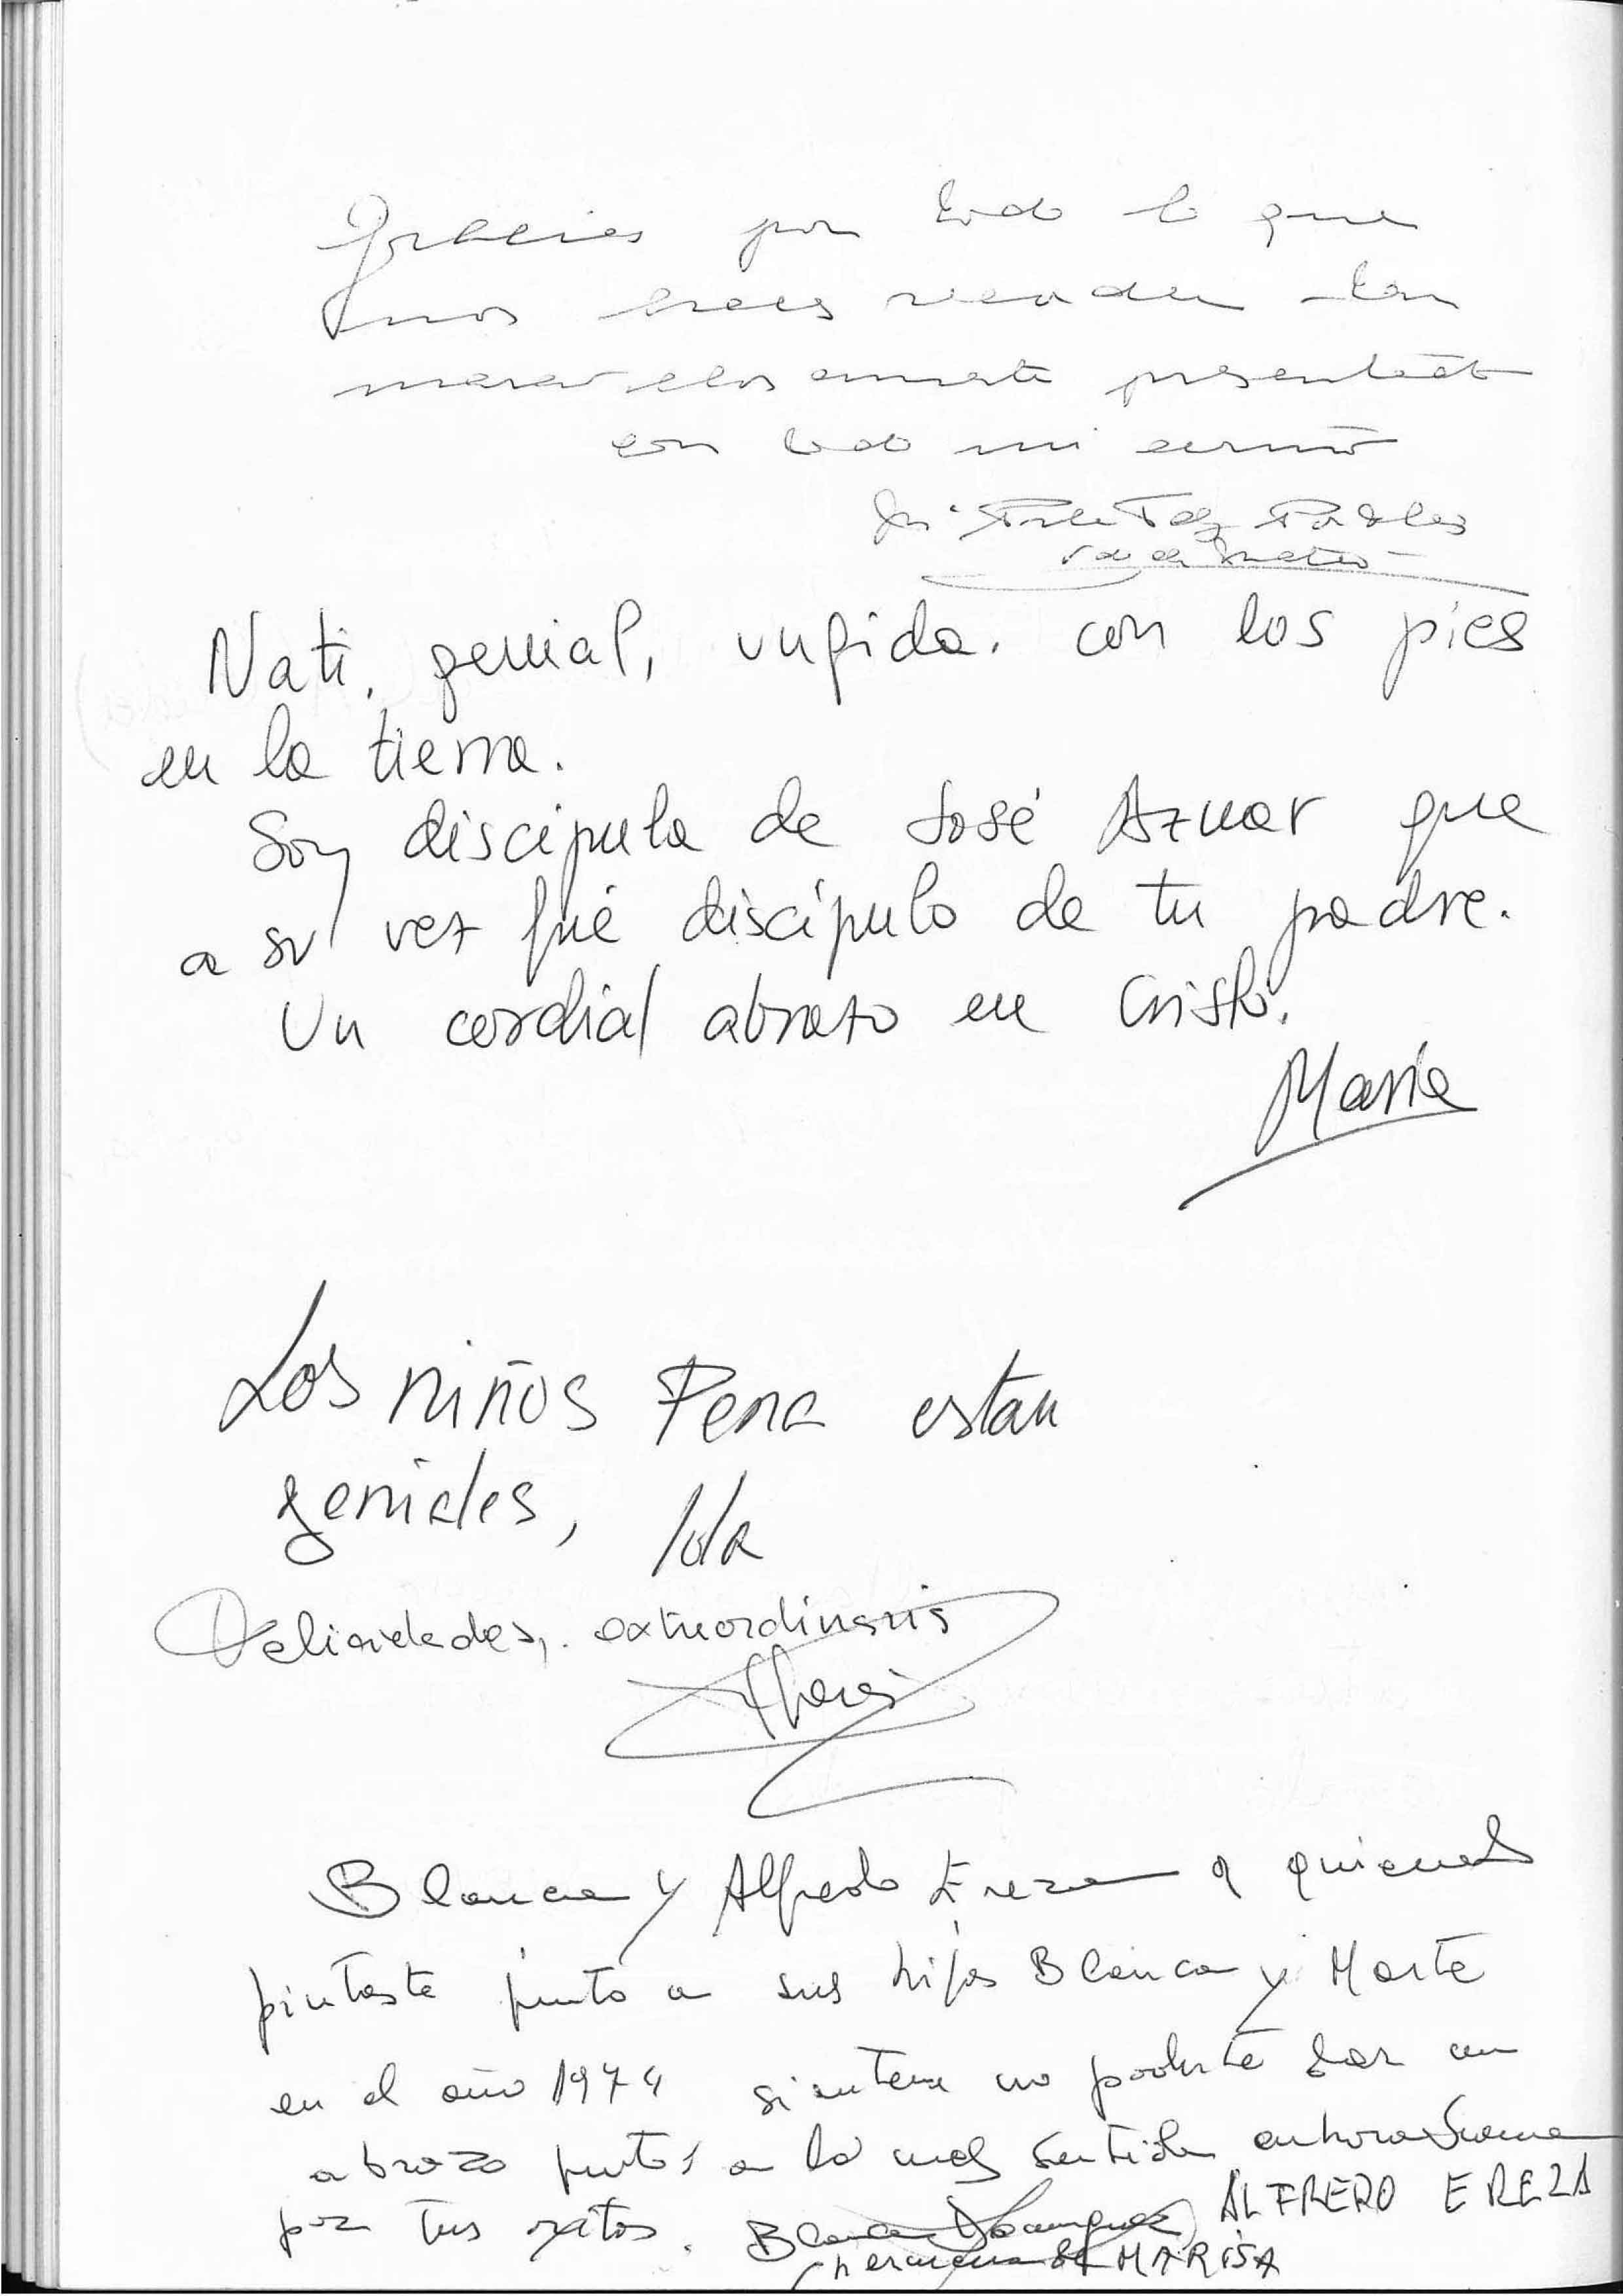 Gracias por todo lo que
nos haces
maravillosamente
con todo mi cariño
Nati, genial, ungida. con los pies
en la tierra.
Soy discípula de José Aznar que
a su vez fué discípulo de tu padre.
Un cordial abrazo en Cristo.
María
Los niños Pena estan
geniales, Lola
Felicidades, extraordinaria
Blanca y Alfredo Ereza a quienes
pintaste junto a sus hijos Blanca y
en el año 1974 sienten no poderte dar un
abrazo juntos a la mas sentida enhorabuena
por tus éxitos. Blanca
hermana de MARISA
ALFREDO EREZA